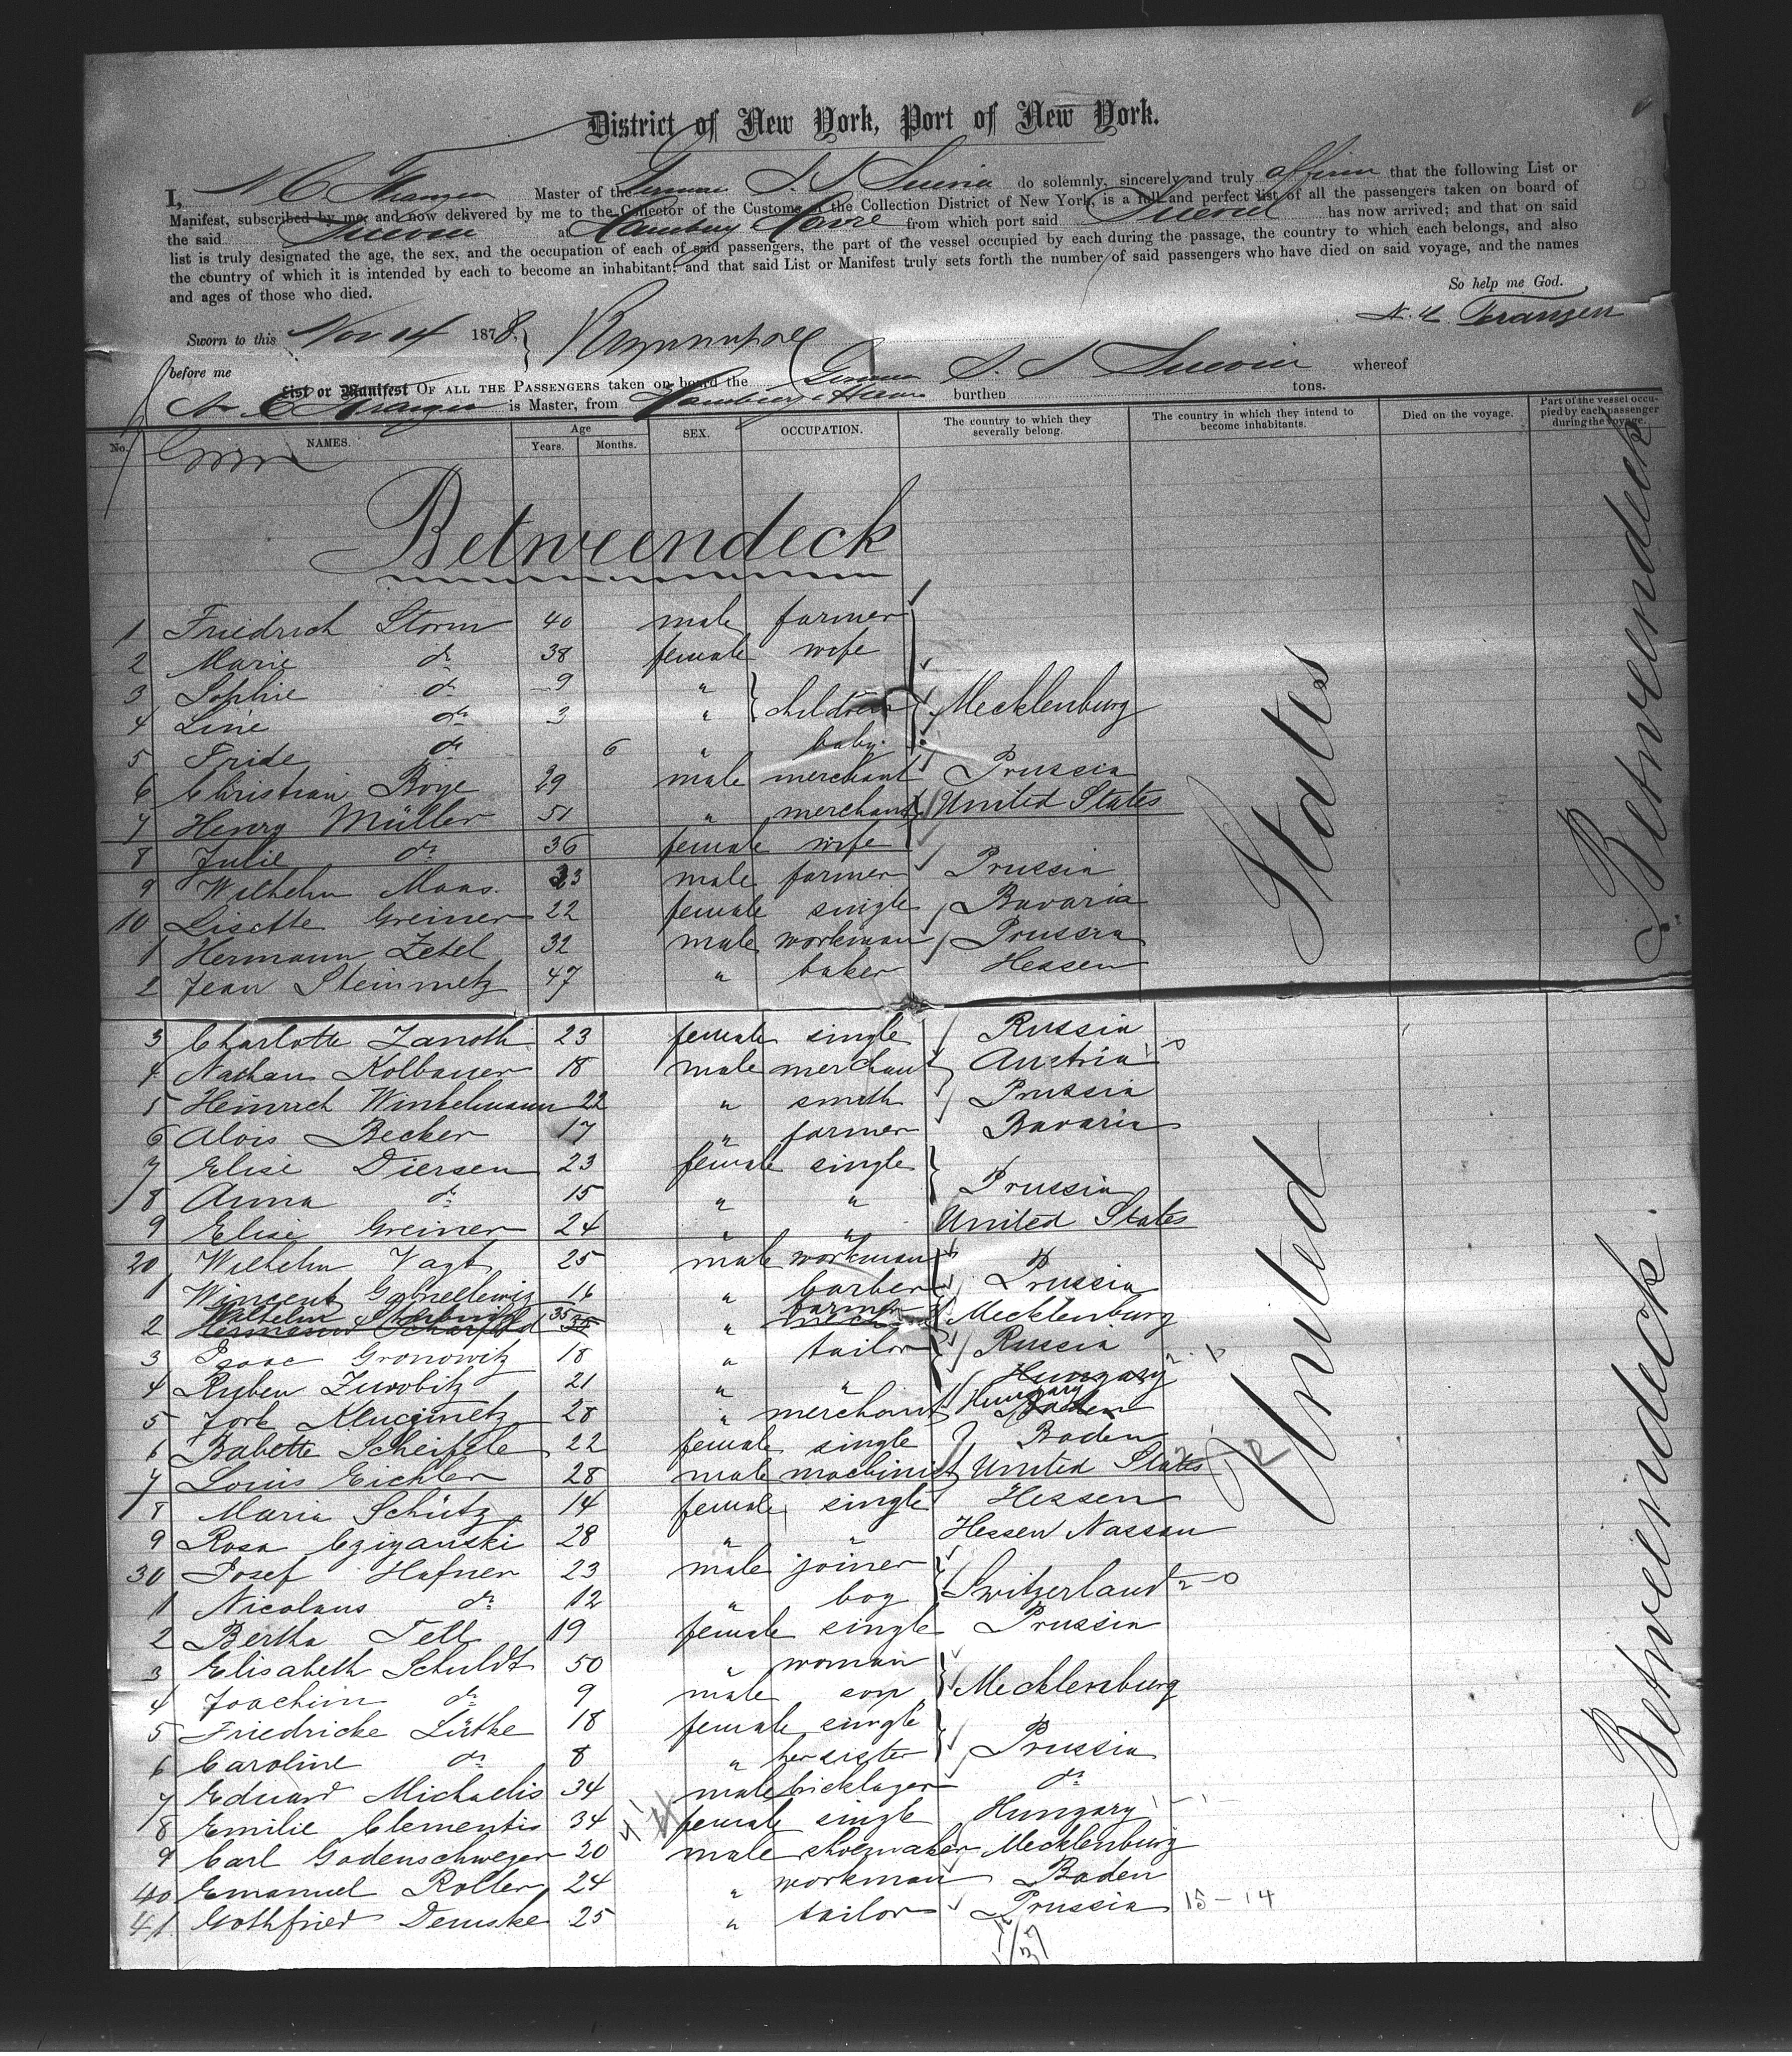 District of New York, Port of New York.
I, N C Franzen Master of the German S. S Suevia do solemnly, sincerely and truly affirm that the following List or
Manifest, subscribed by me, and now delivered by me to the Collector of the Customs of the Collection District of New York, is a full and perfect list of all the passengers taken on board of
the said Suevia at Hamburg Havre from which port said Suevia has now arrived; and that on said
list is truly designated the age, the sex, and the occupation of each of said passengers, the part of the vessel occupied by each during the passage, the country to which each belongs, and also
the country of which it is intended by each to become an inhabitant; and that said List or Manifest truly sets forth the number of said passengers who have died on said voyage, and the names
and ages of those who died.
So help me God.
Sworn to this Nov 14 1878
N. C. Franzen
before me
List or Manifest OF ALL THE PASSENGERS taken on board the German S. S Suevia whereof
N C Franzen is Master, from Hamburg & Havre burthen tons.
No. NAMES. Age Years. Months. SEX. OCCUPATION. The country to which they severally belong. The country in which they intend to become inhabitants. Died on the voyage. Part of the vessel occupied by each passenger during the voyage.
Betweendeck
1 Friedrich Storm 40 male farmer
2 Marie do 38 female wife
3 Sophie do 9 " children Mecklenburg
4 Line do 3 "
5 Fride do 6 " baby
6 Christian Böge 29 male merchant Prussia
7 Henry Müller 51 " merchant United States
8 Julie do 36 female wife
9 Wilhelm Maas. 23 male farmer Prussia
10 Lisette Greiner 22 female single Bavaria
1 Hermann Zetel 32 male workman Prussia
2 Jean Steinmetz 47 " baker Hessen
3 Charlotte Zanoth 23 female single Russia
4 Nathan Kolbauer 18 male merchant Austria
5 Heinrich Winkelmann 22 " smith Prussia
6 Alois Becker 17 " farmer Bavaria
7 Elise Diersen 23 female single
8 Anna do 15 " " Prussia
9 Elise Greiner 24 " " United States
20 Wilhelm Vagt 25 male workman
1 Wincent 16 " barber Prussia
2 Wilhelm 35 " farmer Mecklenburg
3 Isaac Gronowitz 18 " tailor Russia
4 Ruben 21 " " Hungary
5 28 " merchant Hungary
6 Babette Scheifele 22 female single Baden
7 Louis Eichler 28 male machinist United States
8 Maria Schütz 14 female single Hessen
9 Rosa Cziganski 28 " " Hessen Nassau
30 Josef Hafner 23 male joiner
1 Nicolaus do 12 " boy Switzerland
2 Bertha Tell 19 female single Prussia
3 Elisabeth Schuldt 50 " woman
4 Joachim do 9 male son Mecklenburg
5 Friedricke Lüthe 18 female single
6 Caroline do 8 " her sister Prussia
7 Eduard Michaelis 34 male bricklayer do
8 Emilie Clementis 34 female single Hungary
9 Carl Godenschweger 20 male shoemaker Mecklenburg
40 Emanuel Roller 24 " workman Baden
41 Gothfried Demske 25 " tailor Prussia 15-14
United States
Betweendeck
Betweendeck